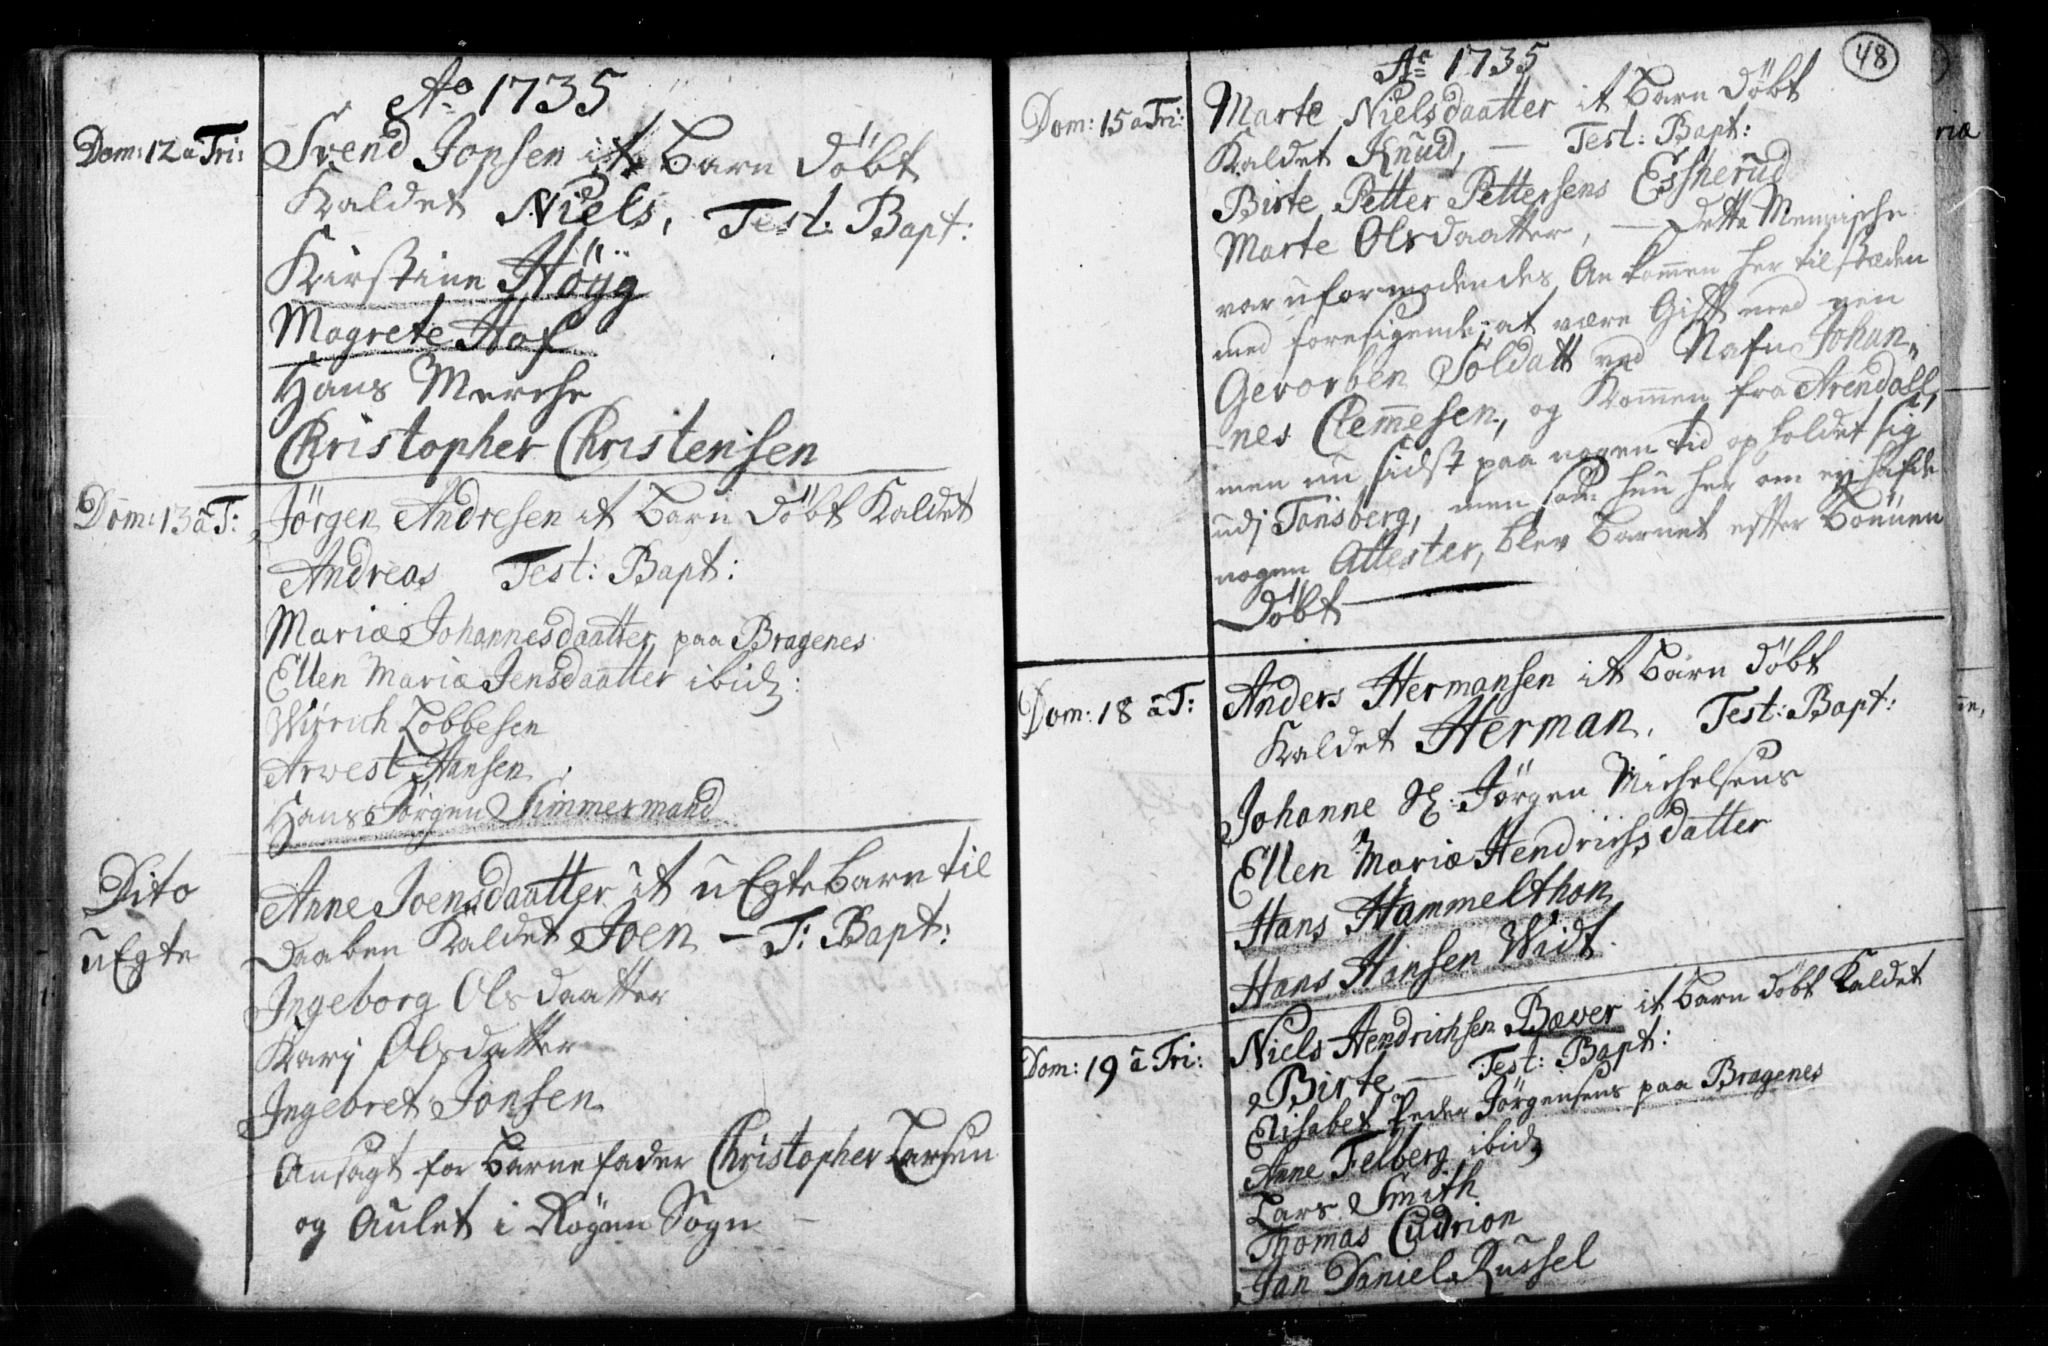 Ao 1735
Dom: 12 a Tri: Svend Jopsen it Barn Döbt
Kaldet Niels, Test: Bapt:
Kirstine Höyg
Magrete Hof
Hans Merche
Christopher Christensen
Dom: 13 a T: Jörgen Andresen it Barn Döbt Kaldet
Andreas Test: Bapt:
Mariæ Johannesdaatter paa Bragenes
Ellen Mariæ Jensdaatter ibid:
Lobbesen
Arvest Hansen
Hans Jörgen Simmermand
Dito Anne Joensdaatter it uEgte barn til
uEgte Daaben Kaldet Joen – T: Bapt:
Ingeborg Olsdaatter
Karj Olsdatter
Ingebret Jonsen
Ansagt for barnefader Christopher Larsen
og Aulet i Röyen Sogn –
48
Ao 1735
Dom: 15 a Tri: Marte Nielsdaatter it Barn Döbt
Kaldet Knud, — Test: Bapt:
Birte Petter Pettersens
Marte Olsdaatter, — Dette Mennische
var uformodendes An kommen her til stæden
med foresigende, at være Gift med een
Gevorben Soldatt ved Nafn Johan-
nes Clemmesen, og Kommen fra Arendall,
men nu sidst paa nogen tid opholdet sig
udj Tonsberg, men som hun her om ej hafde
nogen Attester, blev barnet efter bönnen
Döbt
Dom: 18 a T: Anders Hermansen it barn Döbt
Kaldet Herman, Test: Bapt:
Johanne Sl: Jörgen Michelsens
Ellen Mariæ Hendrichsdatter
Hans Hammelthon
Hans Hansen Widt
Dom: 19 a Tri: Niels Hendrichsen Bæver it barn döbt Kaldet
Birte — Test: Bapt:
Elisabet Peder Jörgensens paa Bragenes
Anne Felberg ibid
Lars Smith
Thomas Cudrion
Jan Daniel Russel